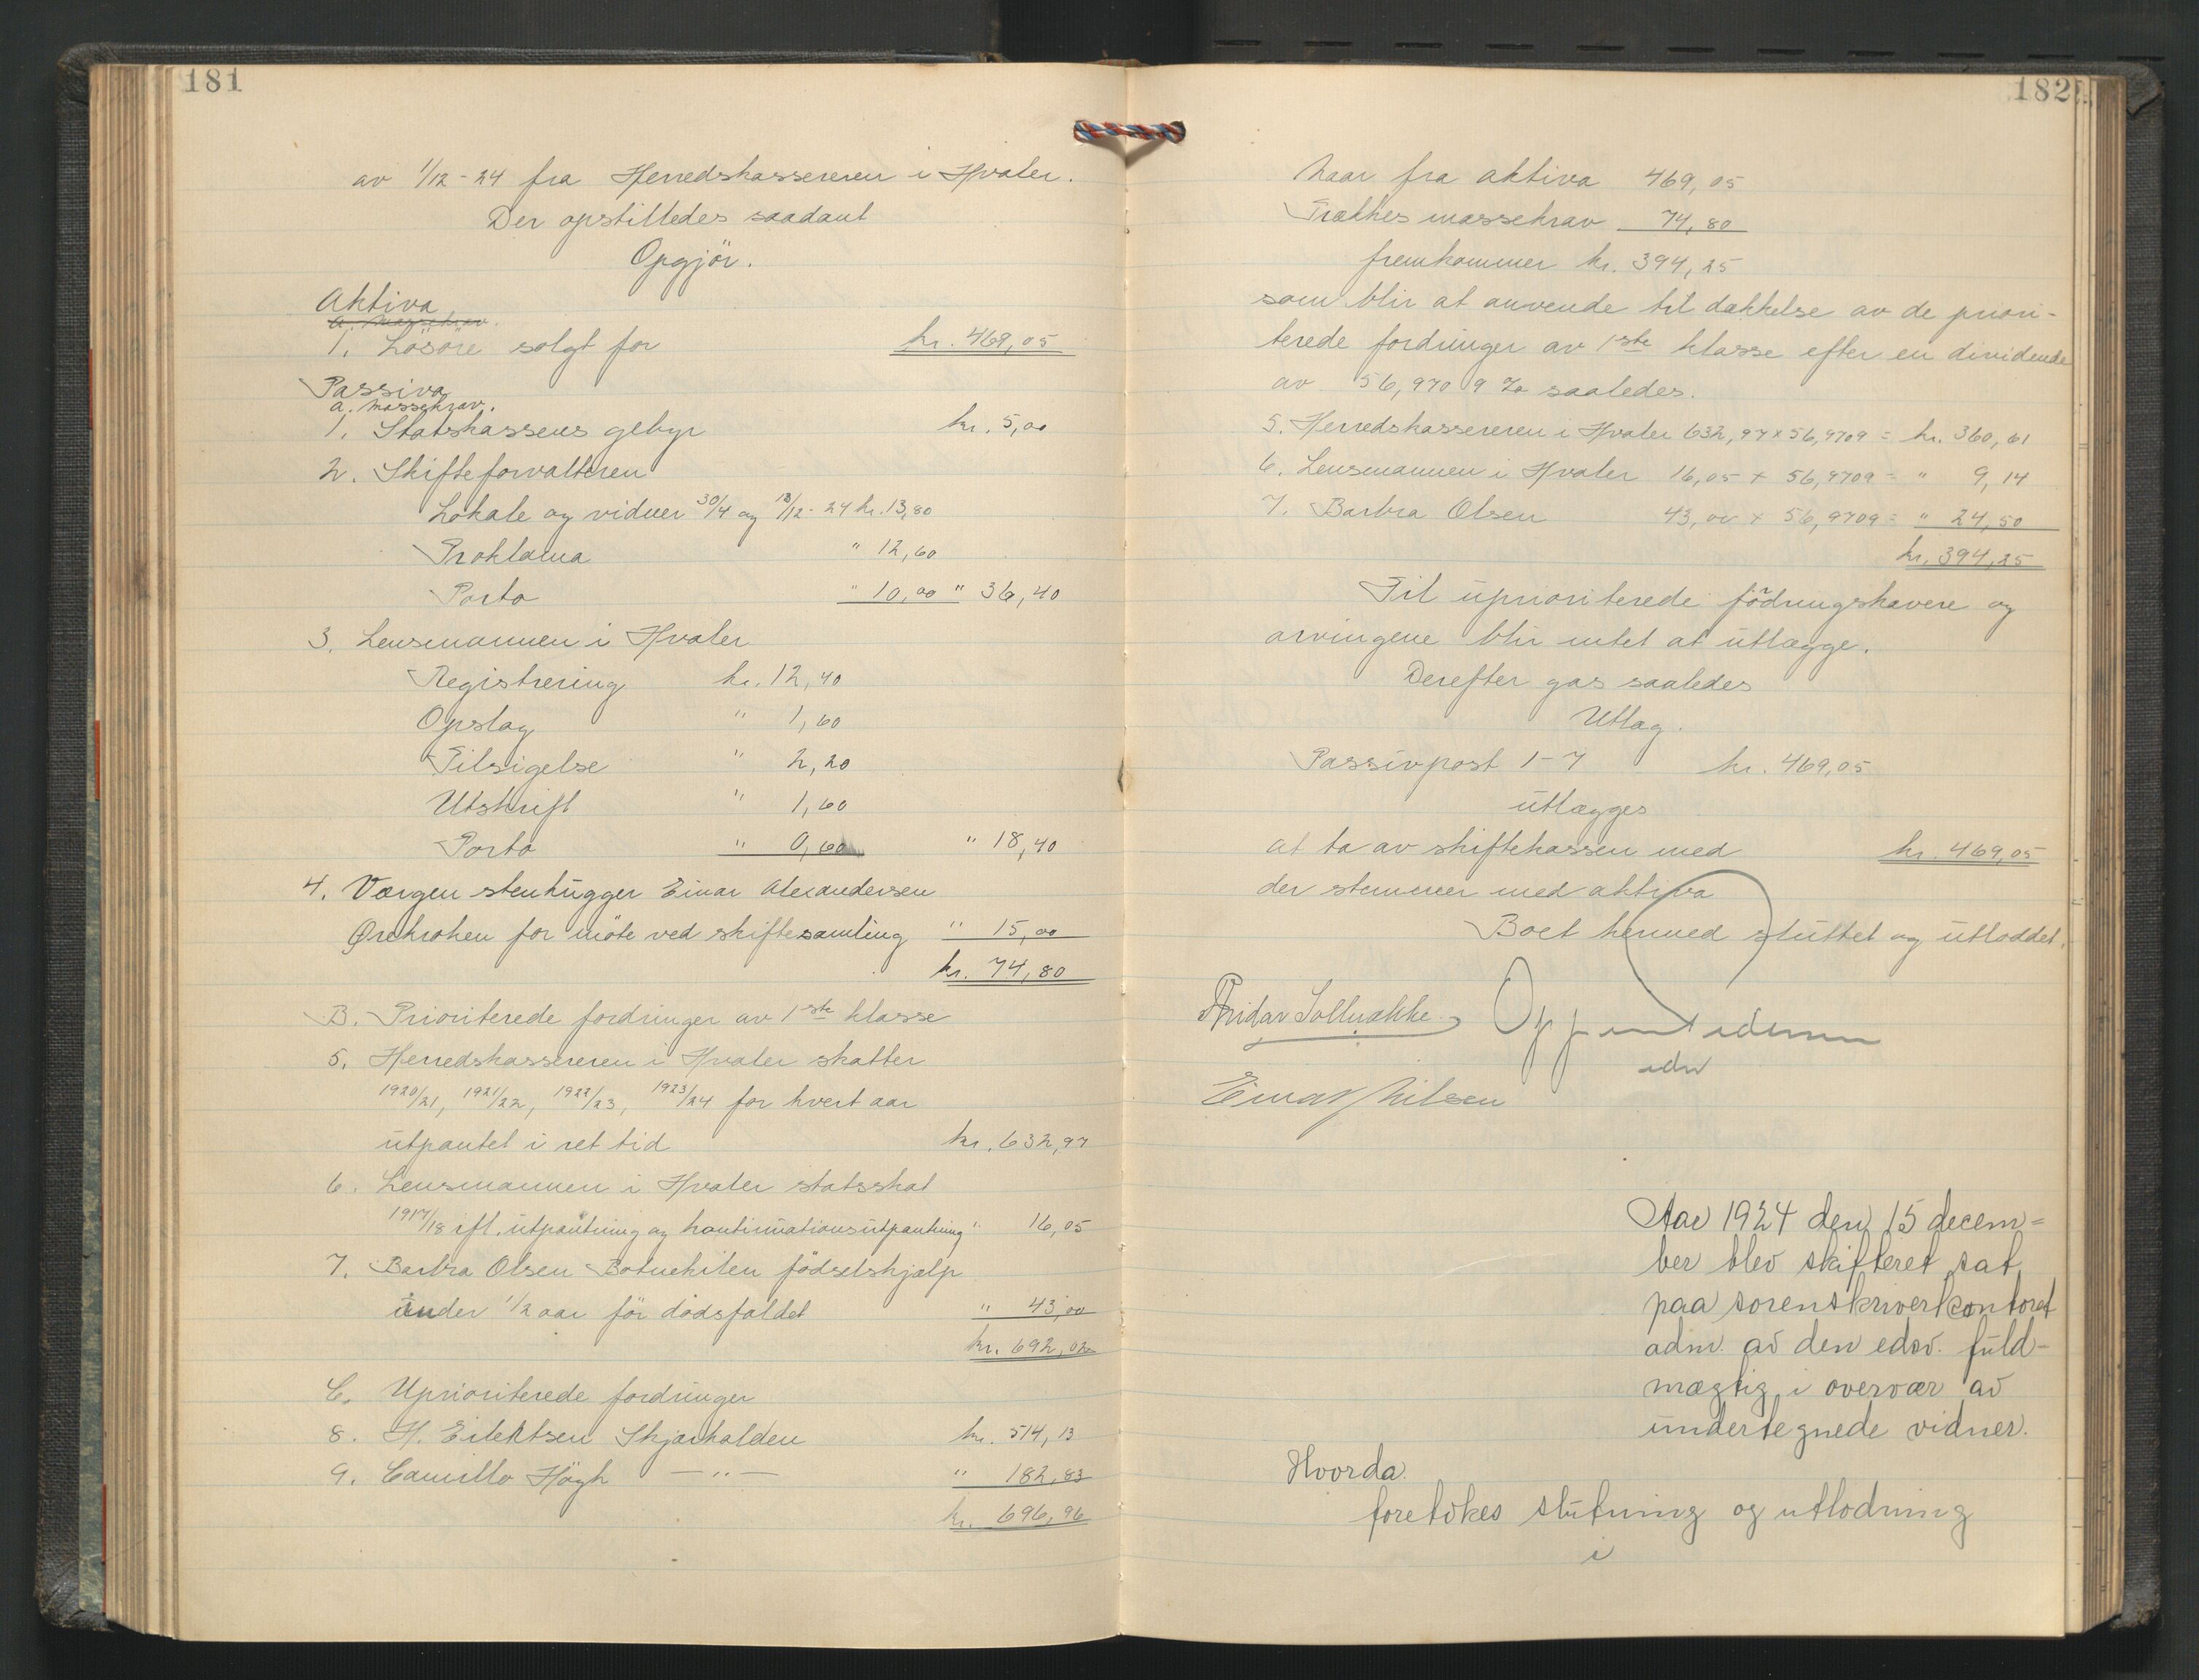 181
av 1/12-24 fra Herredskassereren i Hvaler.
Der opstilledes saadant
Opgjör.
Aktiva
a. Massekrav.
1. Lösöre solgt for kr. 469,05
Passiva
a. Massekrav.
1. Statskassens gebyr kr. 5,00
2. Skifteforvalteren
Lokale og vidner 30/4 og 13/12-24 kr. 13,80
Proklama " 12,60
Porto " 10,00 " 36,40
3. Lensmannen i Hvaler
Registrering kr. 12,40
Opslag " 1,60
Tilsigelse " 2,20
Utskrift " 1,60
Porto " 0,60 " 18,40
4. Værgen stenhugger Einar Alexandersen
Ørekroken for möte ved skiftesamling " 15,00
kr. 74,80
B. Prioriterede fordringer av 1ste klasse
5. Herredskassereren i Hvaler skatter
1920/21, 1921/22, 1922/23, 1923/24 for hvert aar
utpantet i ret tid kr. 632,97
6. Lensmannen i Hvaler statsskat
1917/18 ifl. utpantning og kontinuationsutpantning " 16,05
7. Barbra Olsen Botnekilen födselshjælp
under 1/2 aar för dödsfaldet " 43,00
kr. 692,02
C. Uprioriterede fordringer
8. H. Eilertsen Skjærhalden kr. 514,13
9. Camillo Högh —"— " 182,83
kr. 696,96
182
Naar fra aktiva 469,05
Trækkes massekrav 74,80
fremkommer kr. 394,25
som blir at anvende til dækkelse av de priori-
terede fordringer av 1ste klasse efter en dividende
av 56,9709 % saaledes.
5. Herredskassereren i Hvaler 632,97 x 56,9709 = kr. 360,61
6. Lensmannen i Hvaler 16,05 x 56,9709 = " 9,14
7. Barbra Olsen 43,00 x 56,9709 = " 24,50
kr. 394,25
Til uprioriterede fodringshavere og
arvingene blir intet at utlægge.
Derefter gas saaledes
Utlag.
Passivpost 1-7 kr. 469,05
utlægges
at ta av skiftekassen med kr. 469,05
der stemmer med aktiva
Boet hermed sluttet og utloddet.
edsv
Einar Nilsen
Aar 1924 den 15 decem=
ber blev skifteret sat
paa sorenskriverkontoret
adm. av den edsv. fuld-
mægtig i overvær av
undertegnede vidner.
Hvorda.
foretokes slutning og utlodning
i